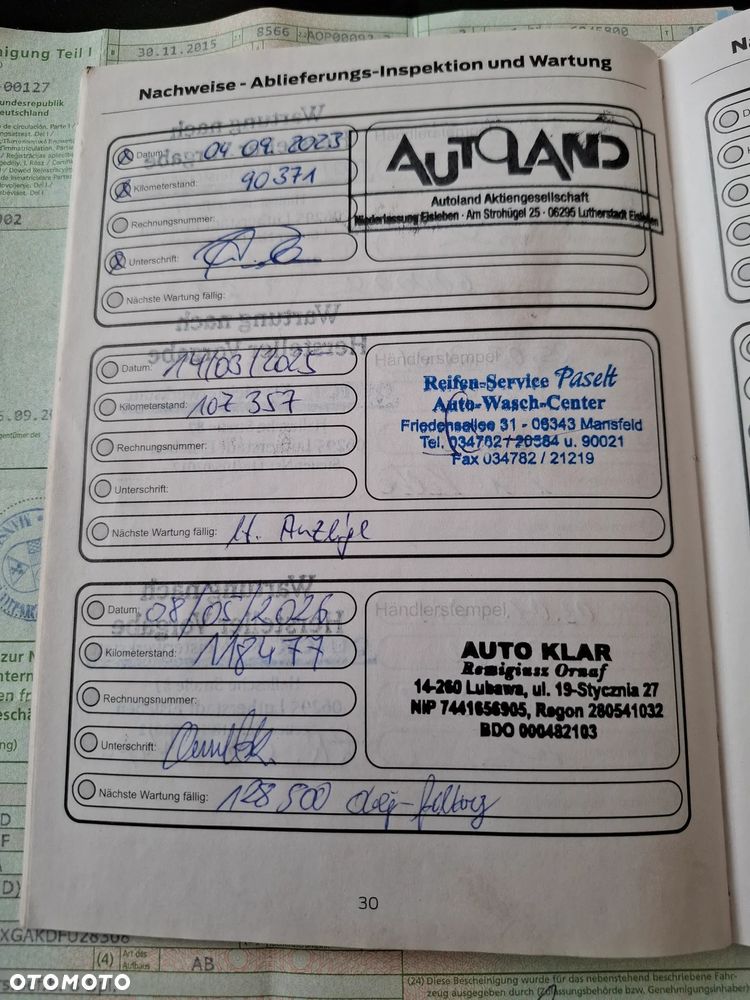 nigung Teil I
30.11.2015
8566
00127
undesrepublik
eutschland
002
Nachweise - Ablieferungs-Inspektion und Wartung
Datum: 04 09. 2023
Kilometerstand: 90371
Rechnungsnummer:
Unterschrift:
Nächste Wartung fällig:
AUTOLAND
Autoland Aktiengesellschaft
Niederlassung Eisleben · Am Strohügel 25 · 06295 Lutherstadt Eisleben
Datum: 14/03/2025
Kilometerstand: 107 357
Rechnungsnummer:
Unterschrift:
Nächste Wartung fällig: lt. Anzeige
Händlerstempel
Reifen-Service Paselt
Auto-Wasch-Center
Friedensallee 31 - 06343 Mansfeld
Tel. 034782 / 20584 u. 90021
Fax 034782 / 21219
Datum: 08/05/2026
Kilometerstand: 118477
Rechnungsnummer:
Unterschrift:
Nächste Wartung fällig: 128 500 olej-filtry
Händlerstempel
AUTO KLAR
Remigiusz Ornaf
14-260 Lubawa, ul. 19-Stycznia 27
NIP 7441656905, Regon 280541032
BDO 000482103
30
(4) Art des Aufbaus AB
(24) Diese Bescheinigung wurde für das nebenstehend beschriebene Fahr-
zeug ausgegeben durch (Zulassungsbehörde bzw. Genehmigungsinhaber)
OTOMOTO